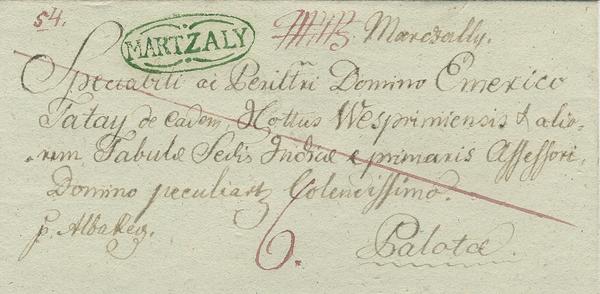 54.
MARTZALY
Marczally.
Spectabili ac Perillri Domino Emerico
Tatay de eadem, Hottus Wesprimiensis & alio-
rum Tabulæ Sedis Judriæ primaris Assessori,
Domino peculiart Colendissimo.
p. Albareg.
6.
Palotæ.